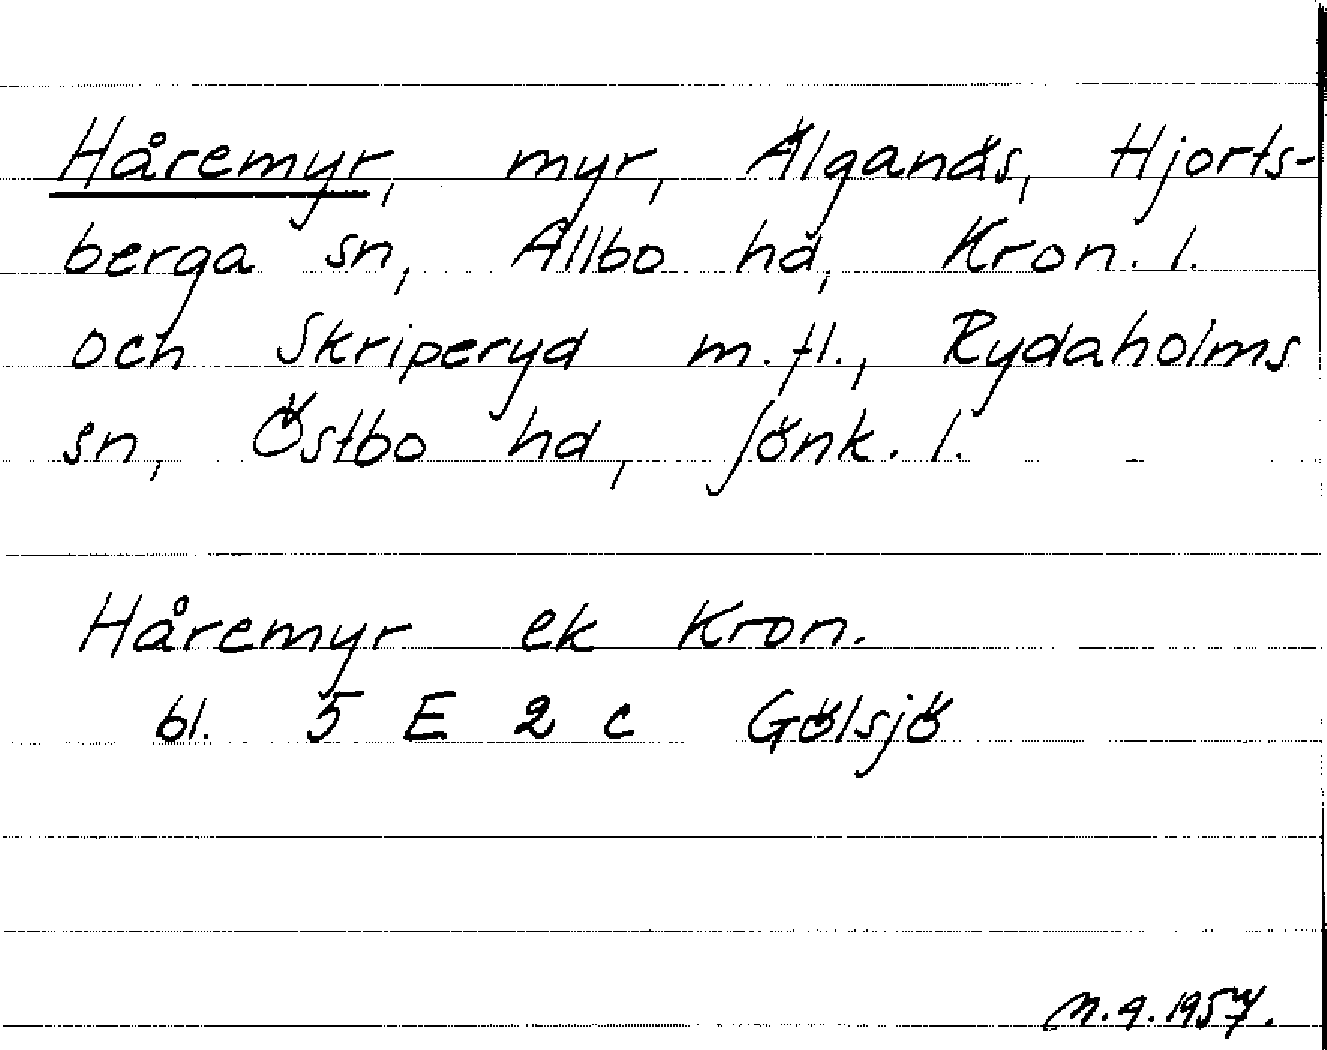 Håremyr, myr, Älganäs, Hjorts-
berga sn, Allbo hd, Kron. l.
och Skriperyd m.fl., Rydaholms
sn, Östbo hd, Jönk. l.
Håremyr ek Kron.
bl. 5 E 2 c Gölsjö
M.A.1957.